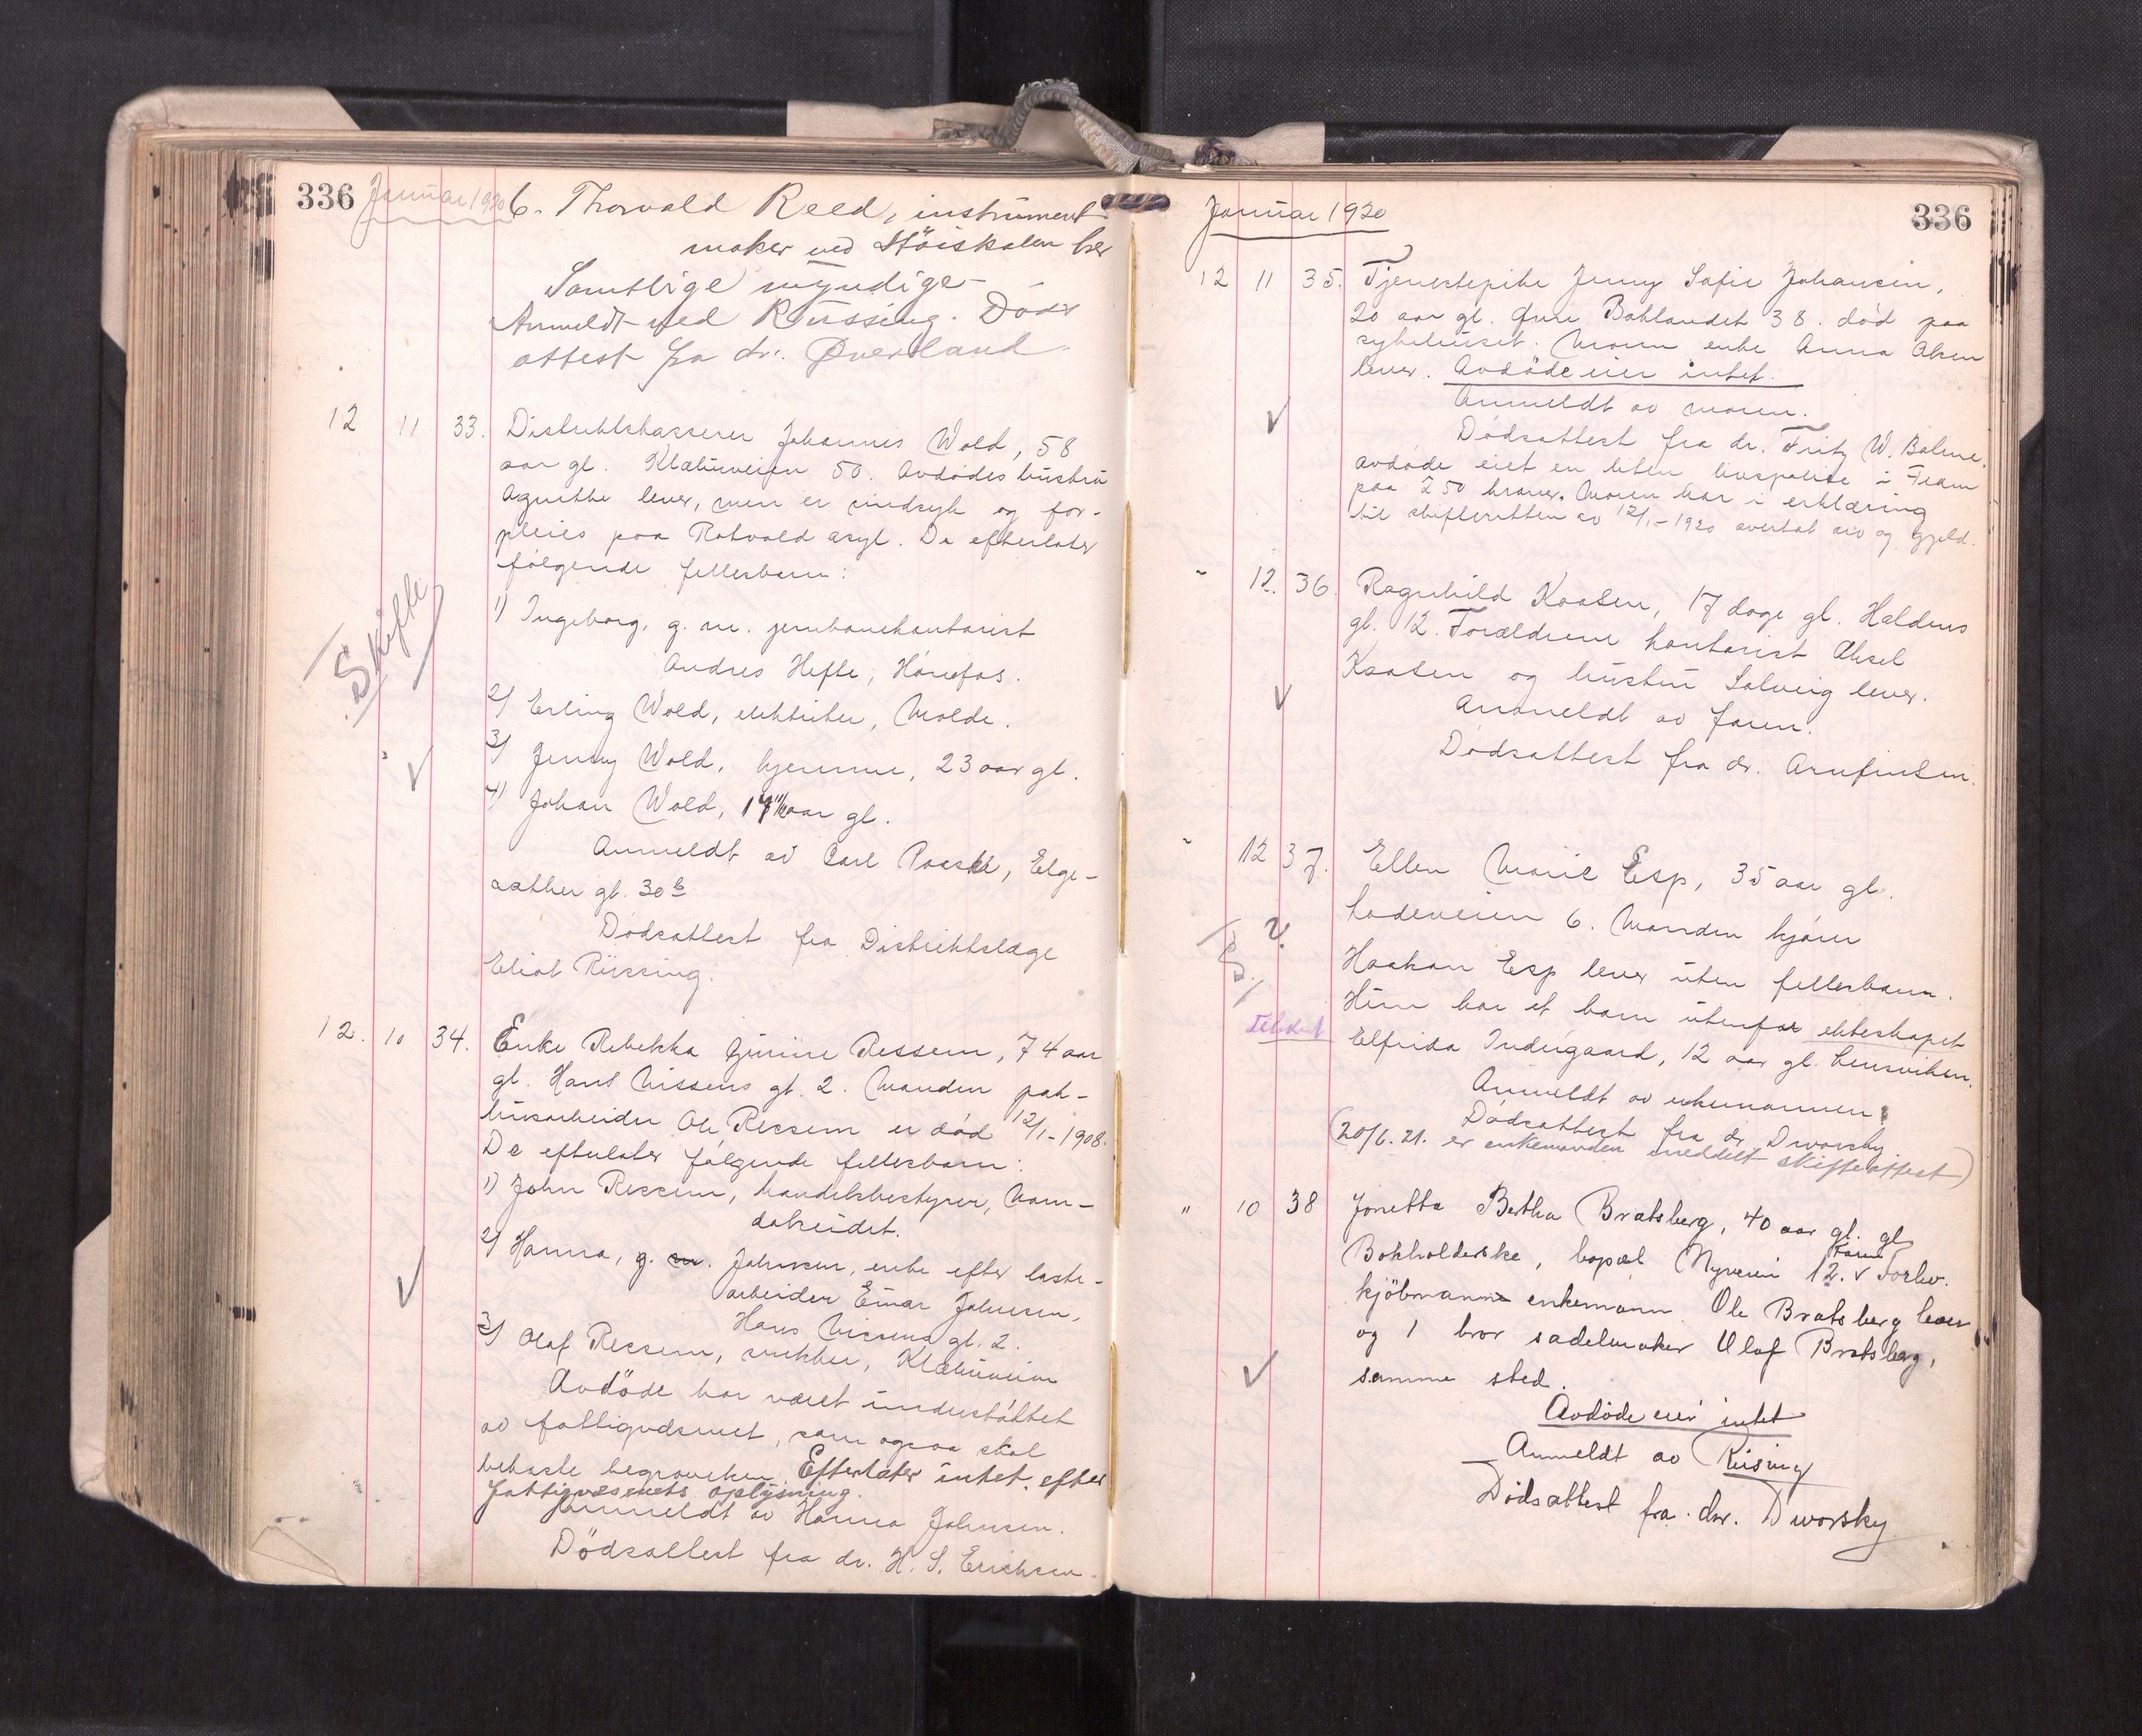 336 Januar 1920 6. Thorvald Reed, instrument
maker ved Høiskolen her
Samtlige myndige -
Anmeldt ved Rüssing. Døds
attest fra dr. Øverland.
12 11 33. Distriktskasserer Johannes Wold, 58
aar gl. Klæbuveien 50. Avdødes hustru
Agnethe lever, men er sindsyk og for-
pleies paa Rotvold asyl. De efterlater
følgende fellesbarn:
Skifte
1) Ingeborg, g. m. jernbanekontorist
Andres Hefte, Hønefos.
2) Erling Wold, elektriker, Molde.
3) Jenny Wold, hjemme, 23 aar gl.
4) Johan Wold, 17 aar gl.
Anmeldt av Carl Paaske, Elge-
sæther gt. 30 b
Dødsattest fra Distriktslæge
Eliat Rüssing.
12. 10 34. Enke Rebekka Gurine Ressem, 74 aar
gl. Hans Nissens gt. 2. Manden pak-
husarbeider Ole Ressem er død 12/1-1908.
De efterlater følgende fellesbarn:
1) John Ressem, handelsbestyrer, Nam-
dalseidet.
2) Hanna, g. m. Johnsen, enke efter laste-
arbeider Einar Johnsen,
Hans Nissens gt. 2.
3) Olaf Ressem, snekker, Klæbuveien
Avdøde har været understøttet
av fattigvdsenet, som ogsaa skal
bekoste begravelsen. Efterlater intet efter
fattigvæsenets oplysning.
Anmeldt av Hanna Johnsen.
Dødsattest fra dr. H. S. Erichsen.
Januar 1920 336
12 11 35. Tjenestepike Jenny Sofie Johansen,
20 aar gl. Øvre Baklandet 38. død paa
sykehuset. Moren enke Anna Olsen
lever. Avdøde eier intet.
Anmeldt av moren.
Dødsattest fra dr. Fritz W. Bolme.
Avdøde eiet en liten livspolise i Fram
paa 250 kroner. Moren har i erklæring
til skifteretten av 12/1-1920 overtat arv og gjeld.
" 12. 36. Ragnhild Kaasen, 17 dage gl. Haldens
gt. 12. Forældrene kontorist Aksel
Kaasen og hustru Solveig lever.
Anmeldt av faren.
Dødsattest fra dr. Arnfinsen.
" 12 37. Ellen Marie Esp, 35 aar gl.
Ladeveien 6. Manden kjører
Haakon Esp lever uten fellesbarn.
Hun har et barn utenfor ekteskapet
Elfrida Indergaard, 12 aar gl. Lensviken.
Anmeldt av enkemannen.
Dødsattest fra dr. Dworsky
(20/6. 21. er enkemanden meddelt skifteattest)
" 10 38 Jonetta Bertha Bratsberg, 40 aar gl. gl
Bokholderske, bopæl Nyveien 12. v Faren Forhv.
kjöbmann enkemann Ole Bratsberg lever
og 1 bror sadelmaker Olaf Bratsberg,
samme sted.
Avdøde eier intet
Anmeldt av Rüsing
Dødsattest fra dr. Dworsky